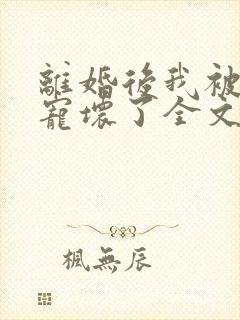 離婚後我被
寵壞了全文
楓無辰